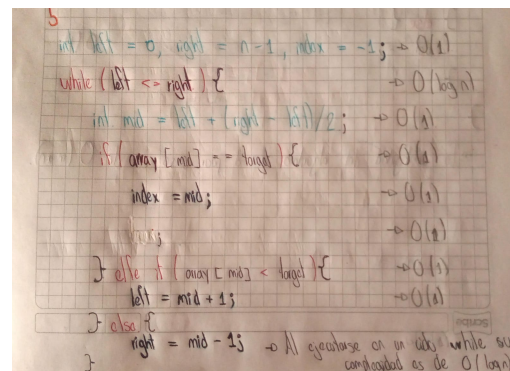 5
int left = 0, right = n-1, index = -1; → O(1)
while (left <= right) { → O(log n)
int mid = left + (right - left)/2; → O(1)
if (array [mid] == target) { → O(1)
index = mid; → O(1)
; → O(1)
} else if (array [mid] < target) { → O(1)
left = mid + 1; → O(1)
} else {
right = mid - 1; → Al ejecutarse en un ciclo while su
} complejidad es de O(log n)
Scribe